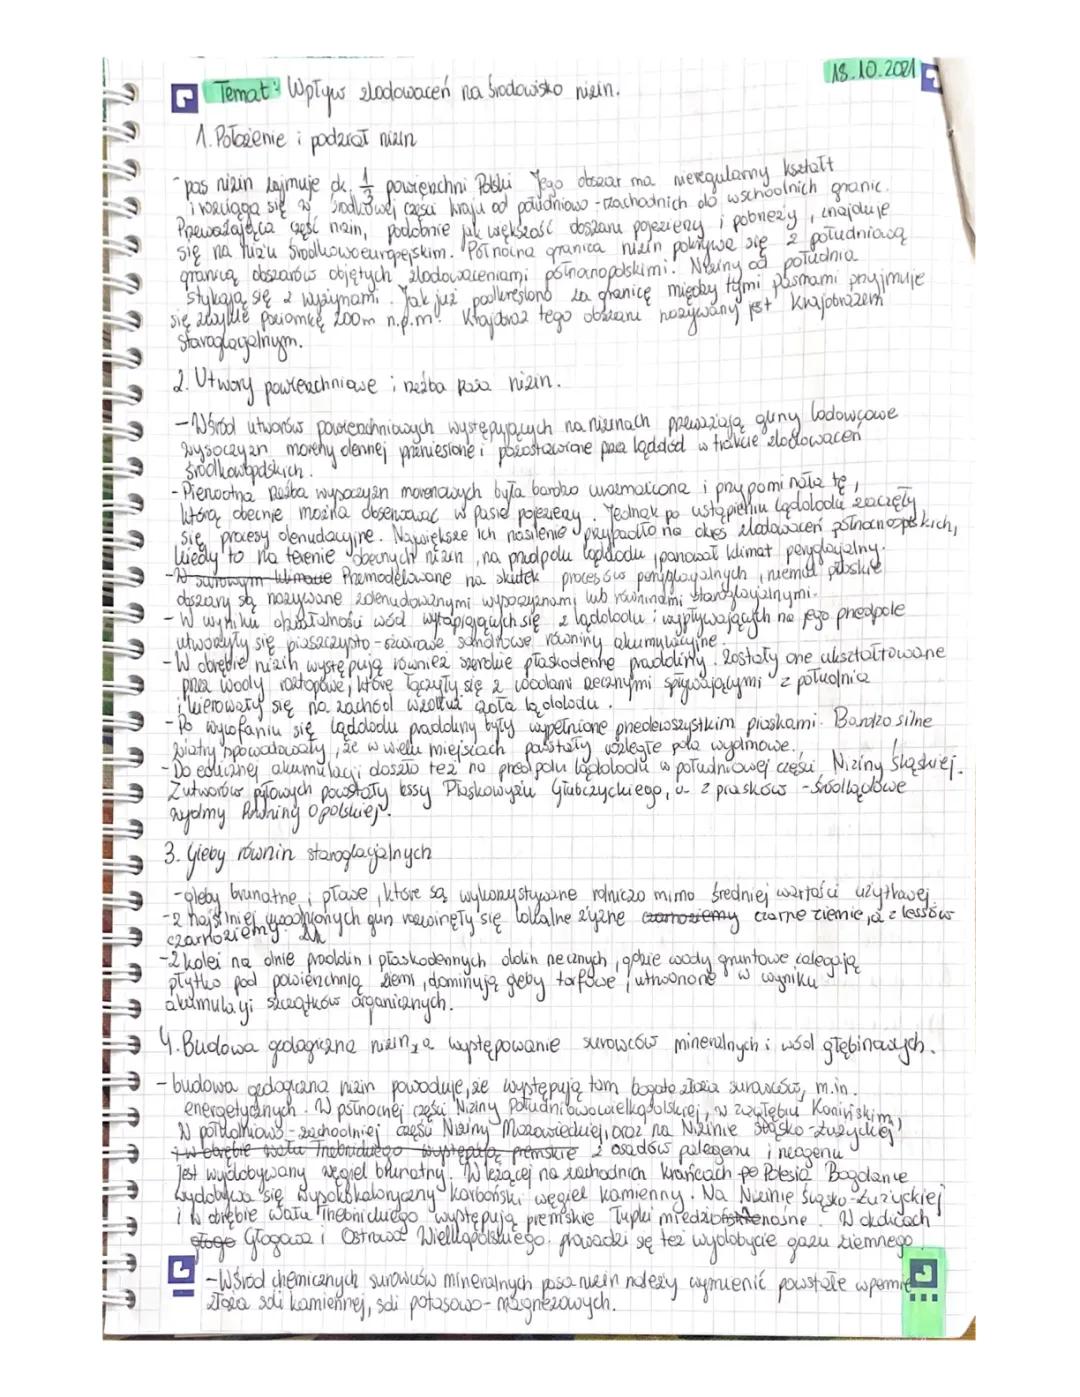 18.10.2021
Temat: Wpływ zlodowaceń na środowisko nizin.
1. Położenie i podział nizin
- pas nizin zajmuje ok. 1/3 powierzchni Polski Jego obszar ma nieregularny kształt
i rozciąga się w środkowej części kraju od południowo-zachodnich do wschodnich granic.
Przeważająca część nizin, podobnie jak większość obszaru pojezierzy i pobrzeży, znajduje
się na Niżu Środkowoeuropejskim. Północna granica nizin pokrywa się z południową
granicą obszarów objętych zlodowaceniami północnopolskimi. Niziny od południa
stykają się z wyżynami. Jak już podkreślono za granicę między tymi pasmami przyjmuje
się zwykle poziomicę 200m n.p.m. Krajobraz tego obszaru nazywany jest krajobrazem
staroglacjalnym.
2. Utwory powierzchniowe i rzeźba pasa nizin.
- Wśród utworów powierzchniowych występujących na nizinach przeważają gliny lodowcowe
wysoczyzn moreny dennej przeniesione i pozostawione prze lądolód w trakcie zlodowaceń
środkowopolskich.
- Pierwotna rzeźba wysoczyzn morenowych była bardzo urozmaicona i przypominała tę,
którą obecnie można obserwować w pasie pojezierzy. Jednak po ustąpieniu lądolodu zaczęły
się procesy denudacyjne. Największe ich nasilenie przypadło na okres zlodowaceń północnopolskich,
kiedy to na terenie obecnych nizin, na przedpolu lądolodu, panował klimat peryglacjalny.
- W surowym klimacie Przemodelowane na skutek procesów peryglacjalnych, niemal płaskie
obszary są nazywane zdenudowanymi wysoczyznami lub równinami staroglacjalnymi.
- W wyniku działalności wód wytapiających się z lądolodu i wypływających na jego przedpole
utworzyły się piaszczysto-żwirowe sandrowe równiny akumulacyjne.
- W obrębie nizin występują również szerokie płaskodenne pradoliny. Zostały one ukształtowane
prze wody roztopowe, które łączyły się z wodami rzecznymi spływającymi z południa
i kierowały się na zachód wzdłuż czoła lądolodu.
- Po wycofaniu się lądolodu pradoliny były wypełnione przedewszystkim piaskami. Bardzo silne
wiatry spowodowały, że w wielu miejscach powstały rozległe pola wydmowe.
- Do eolicznej akumulacji doszło też na przedpolu lądolodu w południowej części Niziny Śląskiej.
Z utworów pyłowych powstały lessy Płaskowyżu Głubczyckiego, a z piasków - śródlądowe
wydmy Równiny Opolskiej.
3. Gleby równin staroglacjalnych
- gleby brunatne i płowe, które są wykorzystywane rolniczo mimo średniej wartości użytkowej.
- z najsilniej uwodnionych gun rozwinęły się lokalne żyzne czarnoziemy czarne ziemie, a z lessów
czarnoziemy.
- Z kolei na dnie pradolin i płaskodennych dolin rzecznych, gdzie wody gruntowe zalegają
płytko pod powierzchnią ziemi, dominują gleby torfowe, utworzone w wyniku
akumulacji szczątków organicznych.
4. Budowa geologiczna nizin, a występowanie surowców mineralnych i wód głębinowych.
- budowa geologiczna nizin powoduje, że występują tam bogate złoża surowców, m.in.
energetycznych. W północnej części Niziny Południowowielkopolskiej, w zagłębiu Konińskim,
W południowo-zachodniej części Niziny Mazowieckiej, oraz na Nizinie Śląsko-Łużyckiej
i w obrębie wału Trzebnickiego występują premskie z osadów paleogenu i neogenu
jest wydobywany węgiel brunatny. W leżącej na zachodnich krańcach po Polesia Bogdance
wydobywa się wysokokaloryczny karboński węgiel kamienny. Na Nizinie Śląsko-Łużyckiej
i w obrębie wału Trzebnickiego występują premskie łupki miedzionośne. W okolicach
głogo Głogowa i Ostrowa Wielkopolskiego prowadzi się też wydobycie gazu ziemnego
- Wśród chemicznych surowców mineralnych pasa nizin należy wymienić powstałe w permie
złoża soli kamiennej, soli potasowo-magnezowych.